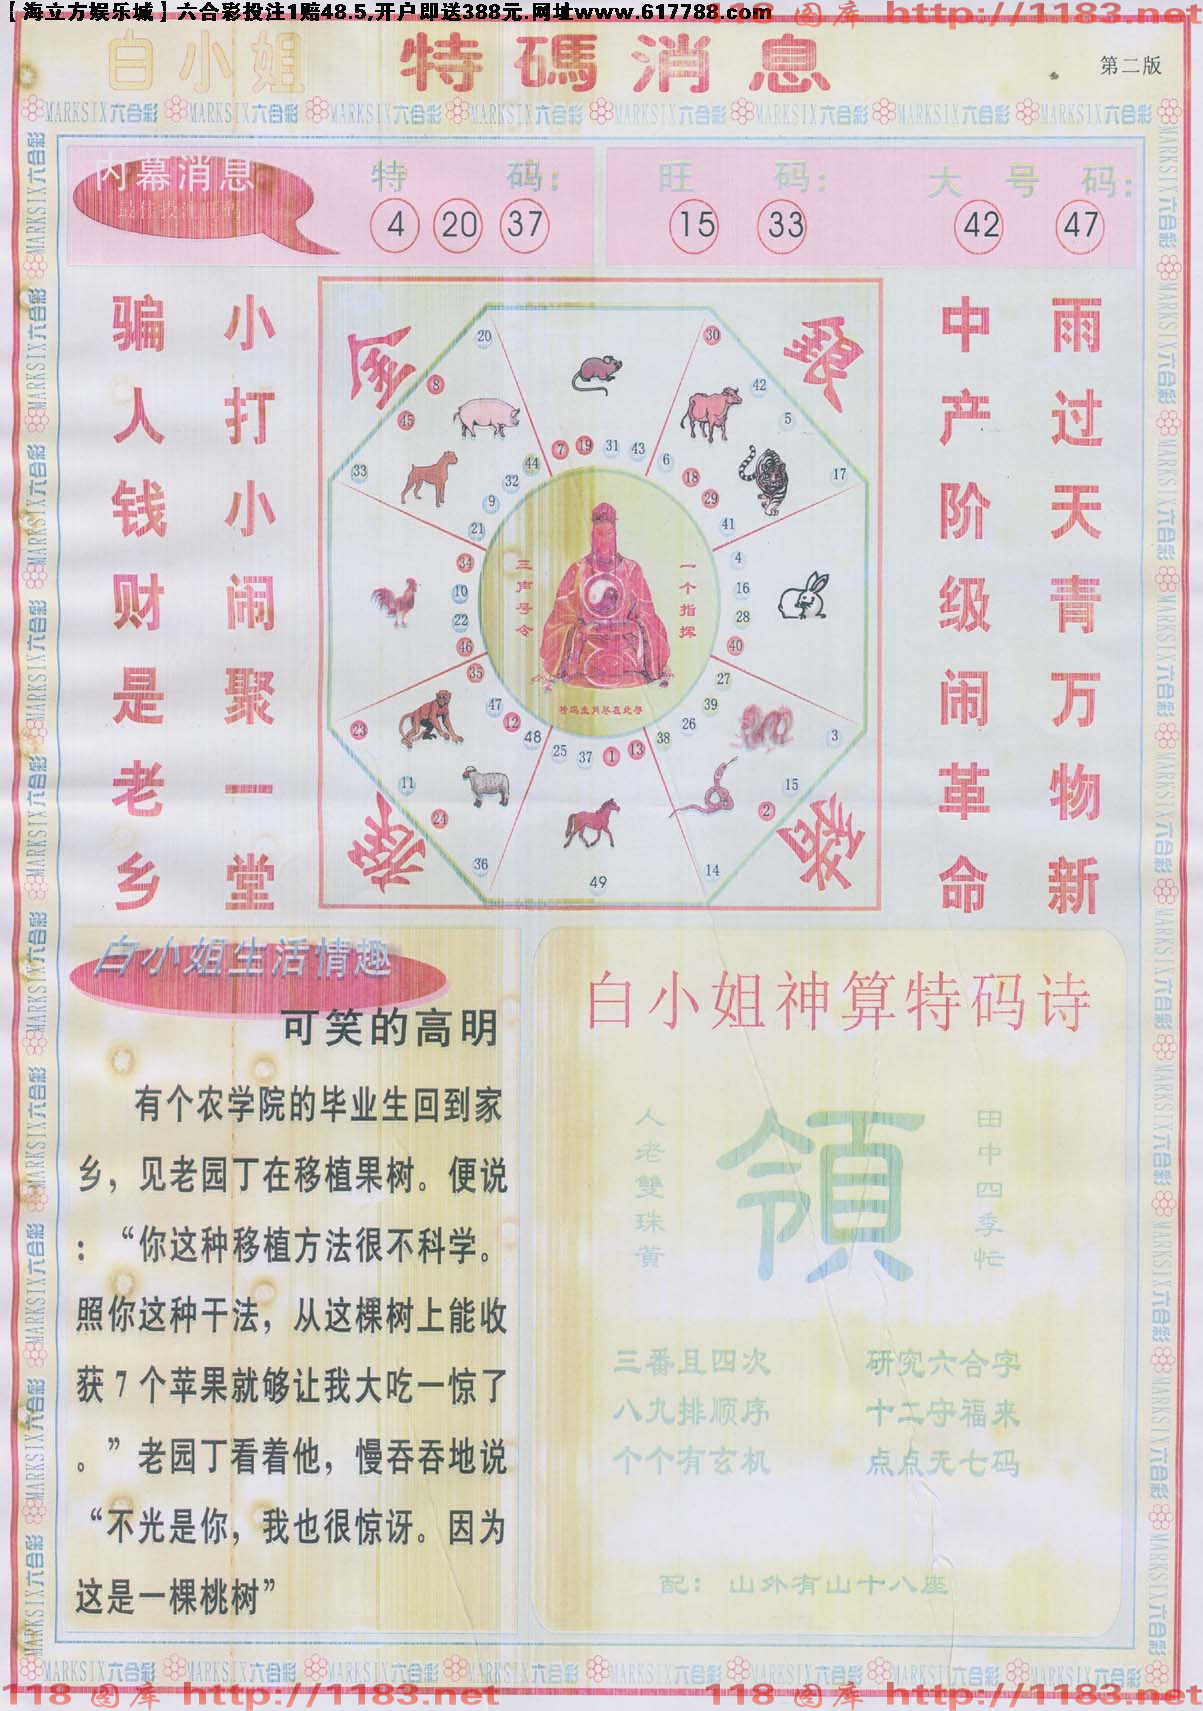 【海立方娱乐城】六合彩投注1赔48.5,开户即送388元.网址www.617788.com
118 图库 http://1183.net
白小姐 特碼消息 第二版
MARKSIX六合彩 MARKSIX六合彩 MARKSIX六合彩 MARKSIX六合彩 MARKSIX六合彩 MARKSIX六合彩 MARKSIX六合彩 MARKSIX六合彩
内幕消息
特 码:
4 20 37
旺 码:
15 33
大 号 码:
42 47
骗人钱财是老乡
小打小闹聚一堂
中产阶级闹革命
雨过天青万物新
20 30
8 42
45 5
33 44 7 19 31 43 6 17
32 18
9 29
21 41
34 4
10 16
22 28
46 40
35 27
47 39
23 12 26 3
48 25 37 1 13 38
11 15
24 2
36 14
49
三声号令
一个指挥
特码生肖尽在此寻
白小姐生活情趣
可笑的高明
有个农学院的毕业生回到家
乡，见老园丁在移植果树。便说
：“你这种移植方法很不科学。
照你这种干法，从这棵树上能收
获7个苹果就够让我大吃一惊了
。”老园丁看着他，慢吞吞地说
“不光是你，我也很惊讶。因为
这是一棵桃树”
白小姐神算特码诗
人老雙珠黄
領
田中四季忙
三番且四次 研究六合字
八九排顺序 十二守福来
个个有玄机 点点无七码
配：山外有山十八座
MARKSIX六合彩 MARKSIX六合彩 MARKSIX六合彩 MARKSIX六合彩 MARKSIX六合彩 MARKSIX六合彩 MARKSIX六合彩 MARKSIX六合彩
118 图库 http://1183.net 118 图库 http://1183.net